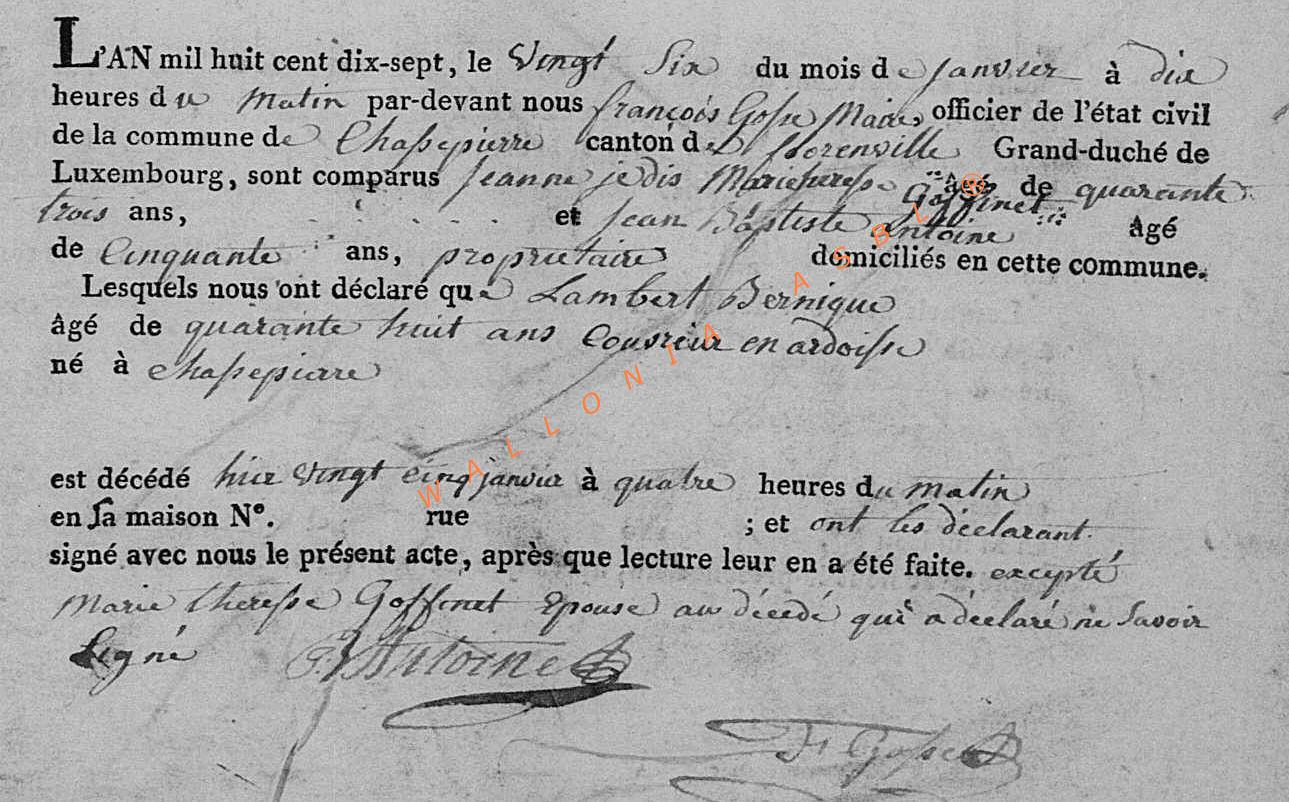 L'AN mil huit cent dix-sept, le Vingt Six du mois de janvier à dix
heures du Matin par-devant nous françois Gosse Maire, officier de l'état civil
de la commune de Chassepierre canton de florenville Grand-duché de
Luxembourg, sont comparus Jeanne jedis Marietheresse Goffinet âgé de quarante
trois ans, et Jean Baptiste antoine âgé
de Cinquante ans, propriétaire domiciliés en cette commune.
Lesquels nous ont déclaré que Lambert Bernique
âgé de quarante huit ans Couvreur en ardoisse
né à Chassepierre
est décédé hier Vingt cinq janvier à quatre heures du matin
en sa maison N°. rue ; et ont les déclarant
signé avec nous le présent acte, après que lecture leur en a été faite. excepté
Marie theresse Goffinet Epouse au décédé qui a déclaré ne Savoir
Signé Antoine
F Gosse
WALLONIA ASBL ®